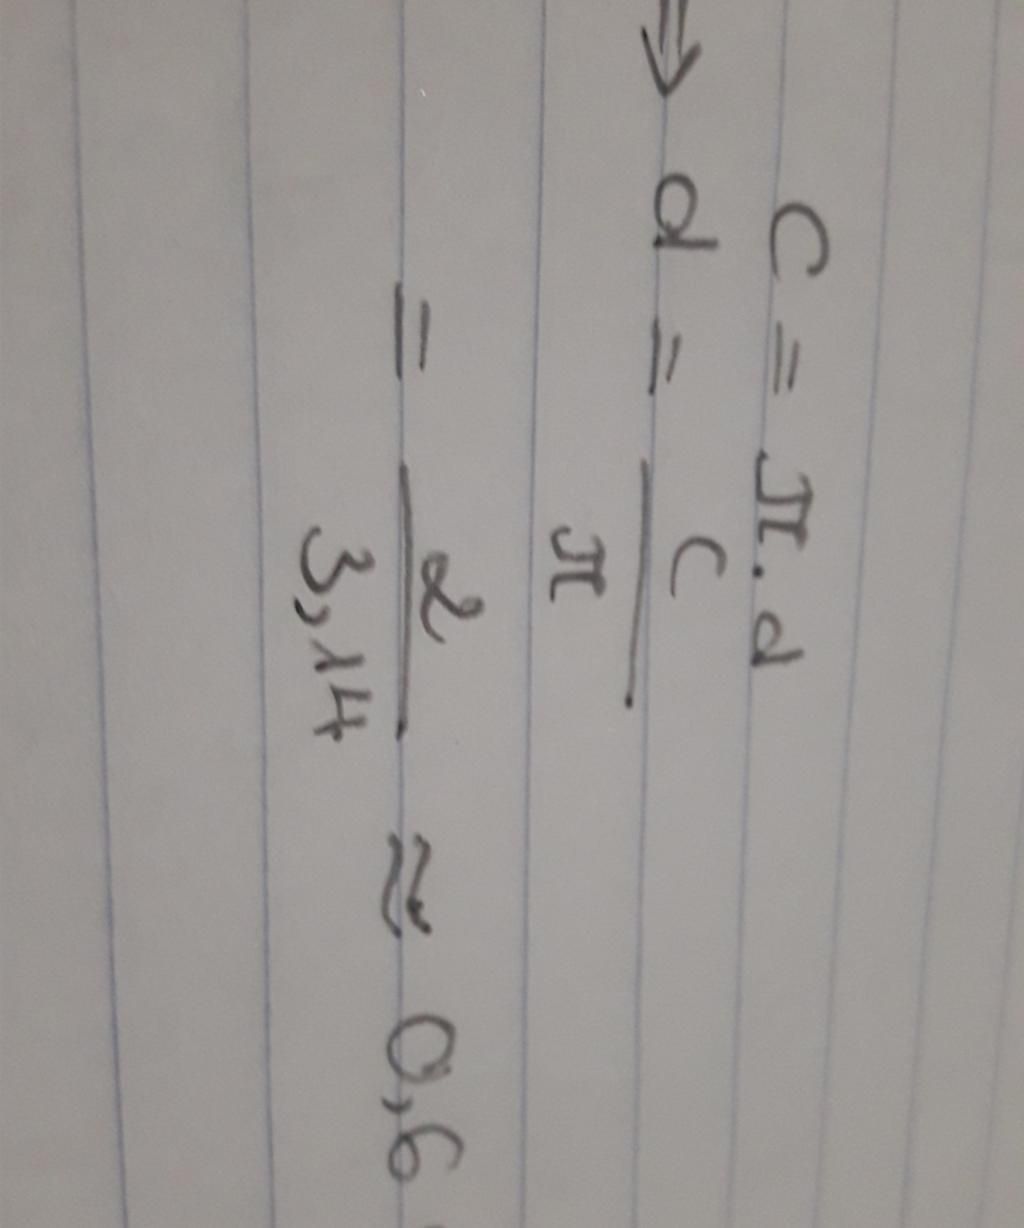 C = π . d
⇒ d = C / π
= 2 / 3,14 ≈ 0,6